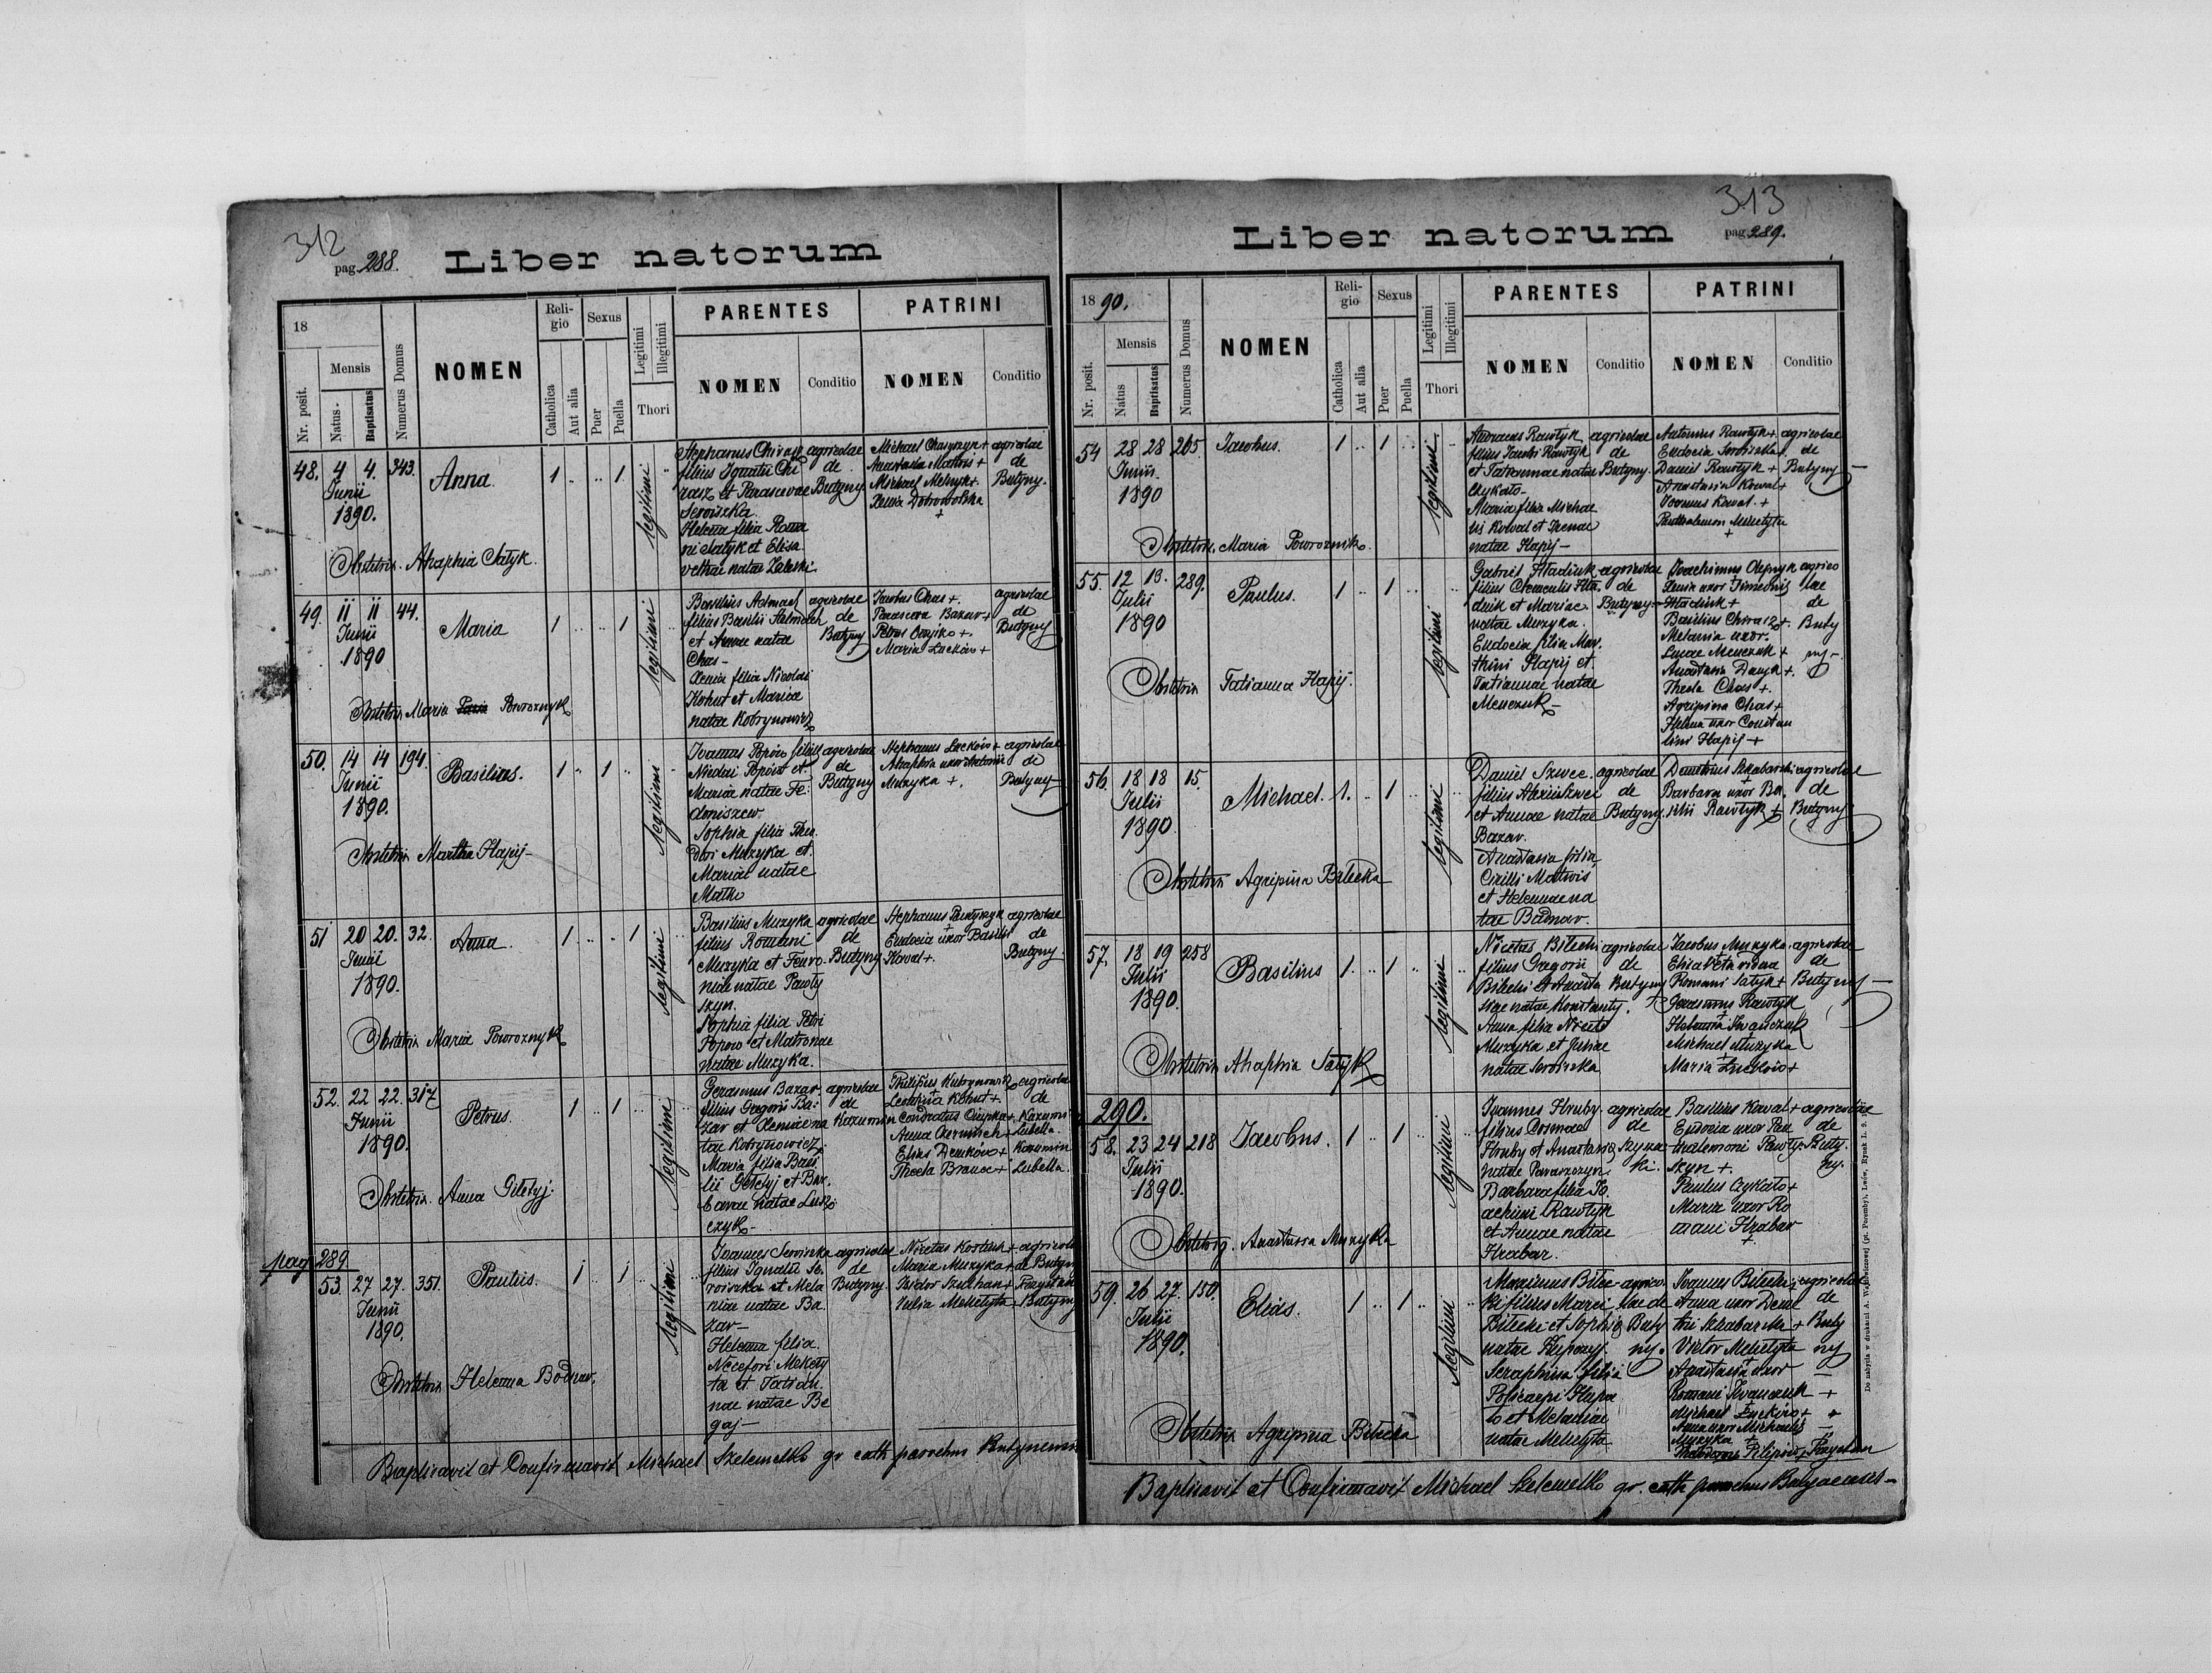 312
pag. 288.
Liber natorum
18
Nr. posit.
Mensis
Natus
Baptisatus
Numerus Domus
NOMEN
Religio
Catholica
Aut alia
Sexus
Puer
Puella
Legitimi
Illegitimi
Thori
PARENTES
NOMEN
Conditio
PATRINI
NOMEN
Conditio
48. 4 4. 343. Anna 1 .. .. 1 legitimi
Junii
1890.
filius Ignatii Chi
rasz et Parascevae
Serwiszka
Helena filia Roma
ni Satyk et Elisa
vethae natae Zaleski
agricolae
de
Butyny
Michael Melnyk +
Xenia Dobrowolska
+
agricolae
de
Butyny.
Obstetrix Ahaphia Satyk.
49. 11 11 44. Maria 1 .. .. 1 legitimi
Junii
1890
filius Basilii
et Annae natae
Chas -
Xenia filia Nicolai
Kohut et Mariae
natae Kobrynowicz
agricolae
de
Butyny
Jacobus Chas +.
Parasceva Bazar +
Maria Luckow +
agricolae
de
Butyny
Obstetrix Maria Poworoznyk
50. 14 14 194. Basilius. 1 .. 1 .. legitimi
Junii
1890.
Joannes Popow filius
Nicolai Popow et
Mariae natae Fe
doniszew
Sophia filia Theo
dori Muzyka et
Mariae natae
agricolae
de
Butyny
Stephanus Luckow +
Ahaphia uxor Antonii
Muzyka +.
agricolae
de
Butyny
Obstetrix Martha Hapij -
51 20 20. 32. Anna. 1 .. .. 1 legitimi
Junii
1890.
Basilius Muzyka
filius Romani
Muzyka et Fevro
niae natae Pawty
szyn.
Sophia filia Petri
Popow et Matronae
natae Muzyka.
agricolae
de
Butyny
Eudocia uxor Basilii
Kowal +.
agricolae
de
Butyny
Obstetrix Maria Poworoznyk
52. 22 22. 317 Petrus. 1 .. 1 .. legitimi
Junii
1890.
Gerasimus Bazar
filius Gregorii Ba
zar et Xeniae na
tae Kobrynowicz
Maria filia Basi
lii Geletyj et Bar
barae natae
czyk -
agricolae
de
Kazumin
Philipus Kobrynowicz
Anna +
Elias +
Thecla +
agricolae
de
Kazumin
Lubella.
Kazumin
Lubella.
Obstetrix Anna Geletyj.
pag 289
53. 27 27. 351. Paulus. 1 .. 1 .. legitimi
Junii
1890.
Joannes Serwiszka
filius Ignatii Se
rwiszka et Mela
niae natae Ba
zar -
Helena filia
Nicefori Mekety
ta et Tatian
nae natae Be
gaj -
agricolae
de
Butyny.
Nicetas +
Maria Muzyka +
Isidor +
Julia Meketyta
agricolae
de Butyny
Butyny
Obstetrix Helena Bodnar.
Baptisavit et Confirmavit Michael Szelemetko gr cath parochus Butynensis
313
pag. 289.
Liber natorum
18 90.
Nr. posit.
Mensis
Natus
Baptisatus
Numerus Domus
NOMEN
Religio
Catholica
Aut alia
Sexus
Puer
Puella
Legitimi
Illegitimi
Thori
PARENTES
NOMEN
Conditio
PATRINI
NOMEN
Conditio
54 28 28 265 Jacobus. 1 .. 1 .. legitimi
Junii.
1890
Andreas Rawtyk
filius Jacobi Rawtyk
et Tatiannae natae
Czykato -
Maria filia Michae
lis Kowal et Irenae
natae Hapij -
agricolae
de
Butyny.
Antonius Rawtyk +
Eudocia Serwiszka
Daniel Rawtyk +
Anastasia Kowal +
Joannes Kowal. +
Panthalemon Meketyta
+
agricolae
de
Butyny -
Obstetrix. Maria Poworoznik.
55. 12 13. 289. Paulus. 1 .. 1 .. legitimi
Julii
1890
Gabriel Hladiuk
filius
duik et Mariae
natae Muzyka.
Eudocia filia Mar
thini Hapij et
Tatiannae natae
Menczuk -
agricolae
de
Butyny
Joachimus Olejnyk
Xenia uxor Simeonis
Hladiuk +
Basilius Chirasz +.
Melania uxor.
Lucae Menczuk +
Anastasia +.
Thecla Chas +.
Agripina Chas +
Helena uxor Constan
tini Hapij +
agrico
lae
de
Buty
ny -
Obstetrix Tatianna Hapij.
56. 18 18 15. Michael. 1. .. 1 .. legitimi
Julii
1890
Daniel Szwec
filius Alexii Szwec
et Annae natae
Bazar.
Anastasia filia
Cirilli Matwis
et Helenae na
tae Badnar.
agricolae
de
Butyny.
Demetrius Szkabarski
Barbara uxor Ba
silii Rawtyk +
agricolae
de
Butyny
Obstetrix Agripina Bilecka
57. 18 19 258 Basilius 1. .. 1 .. legitimi
Julii
1890.
Nicetas Bilecki
filius Gregorii
Bilecki et Anasta
siae natae Konstanty.
Anna filia Nicetae
Muzyka et Juliae
natae Serwiszka
agricolae
de
Butyny
Jacobus Muzyka.
Elisaveta vidua
Romani Satyk +
Gerasimus Rawtyk
+
Helena Iwanczuk
Michael Muzyka
+
Maria Luckow +
agricolae
de
Butyny -
Obstetrix Ahaphia Satyk
290.
58. 23 24 218 Jacobus. 1 .. 1 .. legitimi
Julii
1890.
Joannes Hruby
filius Cosmae
Hruby et Anastasiae
natae
Barbara filia Jo
achimi Rawtyk
et Annae natae
Hrabar.
agricolae
de
ki.
Basilius Kowal +
Eudocia uxor Pan
thalemoni Pawty
szyn +.
Paulus Czykato +
Maria uxor Ro
mani Hrabar
+
agricolae
de
Buty
ny.
Obstetrix. Anastasia Muzyka
59. 26 27. 150. Elias. 1 .. 1 .. legitimi
Julii
1890.
Maximus Bilec
ki filius Marci
Bilecki et Sophiae
natae
Seraphina filia
Policarpi Hapa
lo et Meladiae
natae Meketyta
agrico
lae de
Buty
ny.
Joannes Bilecki +
Anna uxor Deme
trii Szkabarski +
Victor Meketyta
+
Anastasia uxor
Romani Iwanczuk
Michael Luckow +
Anna uxor Michaelis
Muzyka +
Theodorus Pilipow +
agricolae
de
Buty
ny
Obstetrix Agripina Bilecka
Baptisavit et Confirmavit Michael Szelemetko gr. cath parochus Butynensis -
Do nabycia w drukarni A. Wajdowiczowej (pt. Poremby), Lwów, Rynek L. 9.